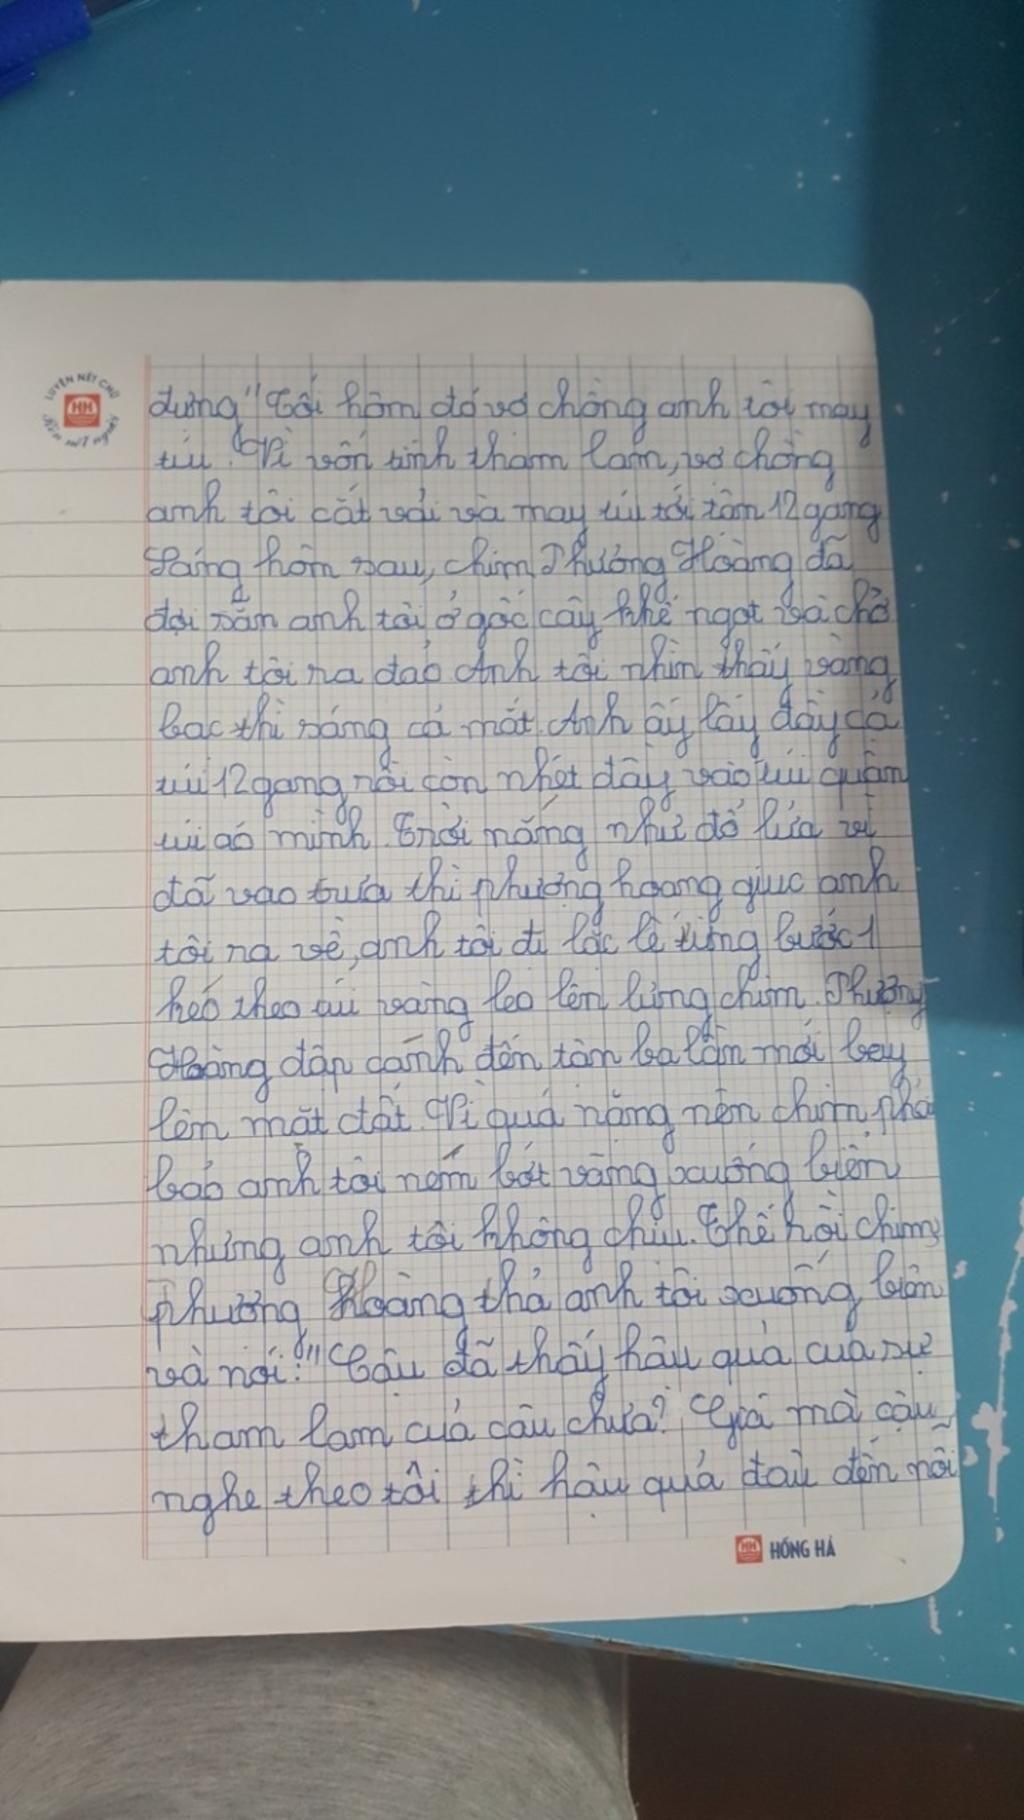 LUYỆN NÉT CHỮ
HH
đựng" Tối hôm đó vợ chồng anh tôi may
túi. Vì vốn tính tham lam, vợ chồng
anh tôi cắt vải và may túi tới tận 12 gang
Sáng hôm sau, chim Phượng Hoàng đã
đợi sẵn anh tôi ở gốc cây khế ngọt và chờ
anh tôi ra đảo. Anh tôi nhìn thấy vàng
bạc thì sáng cả mắt. Anh ấy lấy đầy cả
túi 12 gang rồi còn nhét đầy vào túi quần
túi áo mình. Trời nắng như đổ lửa vì
đã vào trưa thì phượng hoang giục anh
tôi ra về, anh tôi đi lặc lè từng bước 1
kéo theo túi vàng leo lên lưng chim. Phượng
Hoàng đập cánh đến tận ba lần mới bay
lên mặt đất. Vì quá nặng nên chim phả
bảo anh tôi ném bớt vàng xuống biển
nhưng anh tôi không chịu. Thế hồi chim
phượng Hoàng thả anh tôi xuống biển
và nói: "Cậu đã thấy hậu quả của sự
tham lam của cậu chưa? Giá mà cậu
nghe theo tôi thì hậu quả đâu đến nỗi
HH HỒNG HÀ